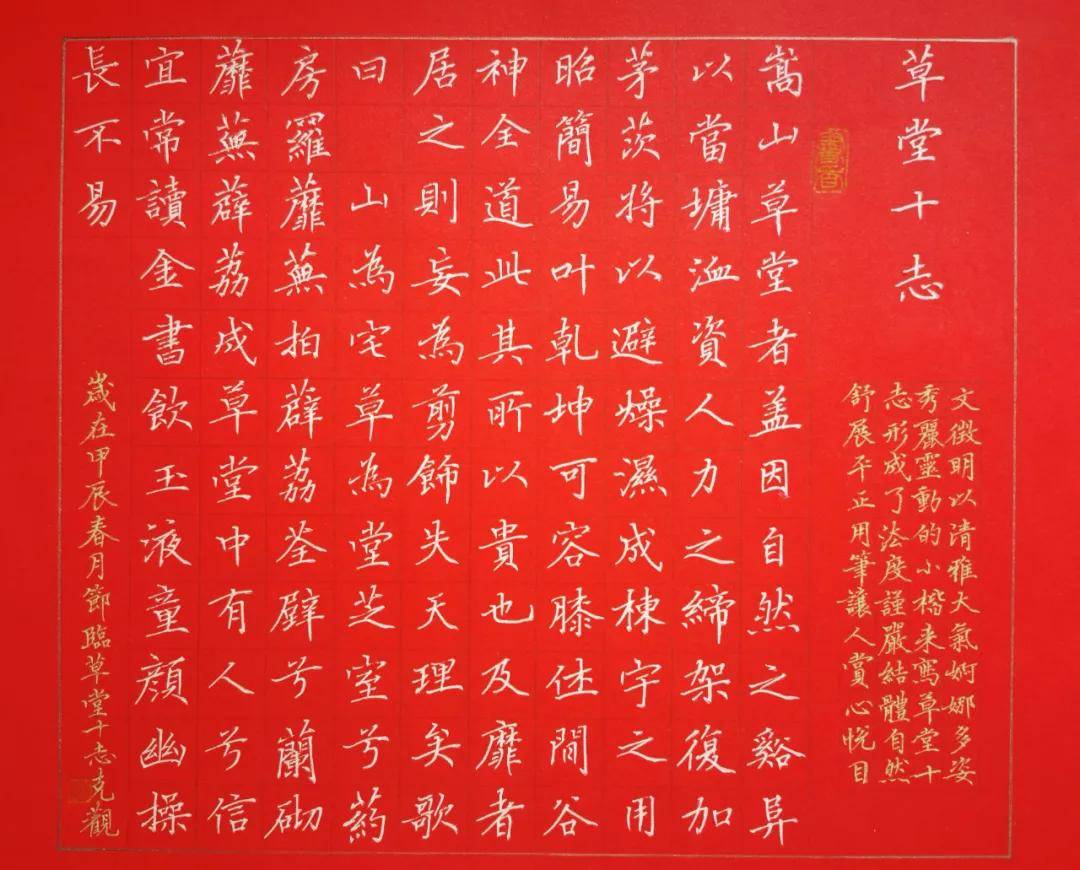 草堂十志
文徵明以清雅大氣婀娜多姿
秀麗靈動的小楷来寫草堂十
志形成了法度謹嚴結體自然
舒展平正用筆讓人賞心悅目
嵩山草堂者盖因自然之谿阜
以當墉洫資人力之締架復加
茅茨將以避燥濕成棟宇之用
昭簡易叶乾坤可容膝休閒谷
神全道此其所以貴也及靡者
居之則妄為剪飾失天理矣歌
曰山為宅草為堂芝室兮葯
房羅蘼蕪拍薜荔荃壁兮蘭砌
蘼蕪薜荔成草堂中有人兮信
宜常讀金書飲玉液童顏幽操
長不易
嵗在甲辰春月節臨草堂十志克觀